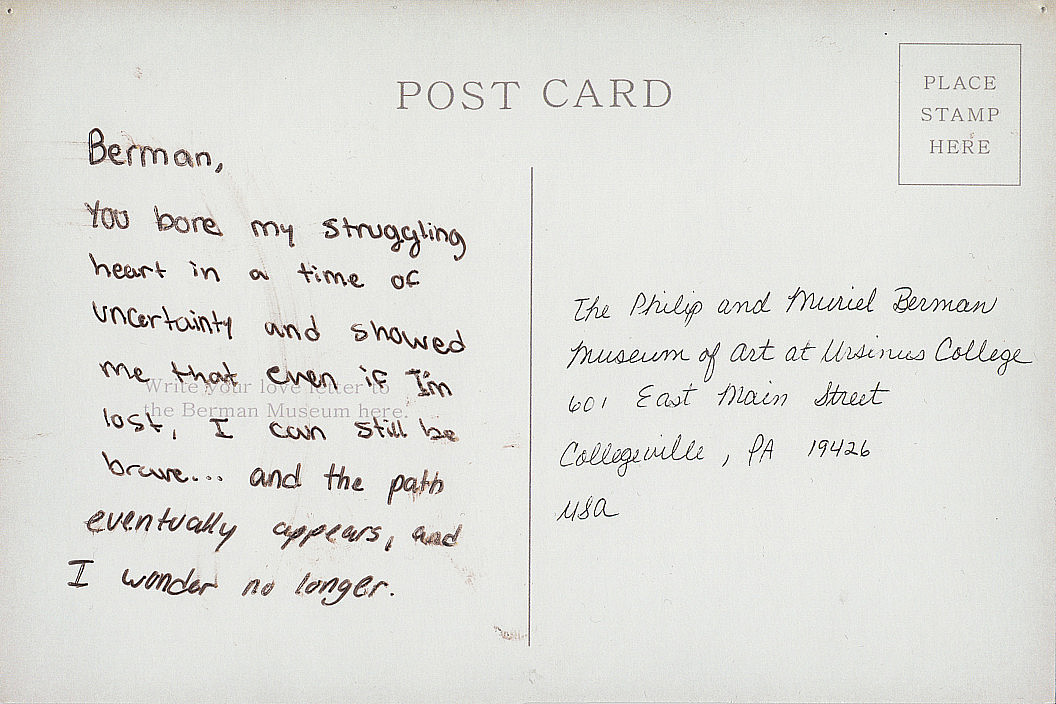 POST CARD
PLACE
STAMP
HERE
Berman,
You bore my struggling
heart in a time of
uncertainty and showed
me that even if I'm
lost, I can still be
brave... and the path
eventually appears, and
I wonder no longer.
Write your love letter to
the Berman Museum here.
The Philip and Muriel Berman
Museum of Art at Ursinus College
601 East Main Street
Collegeville, PA 19426
USA